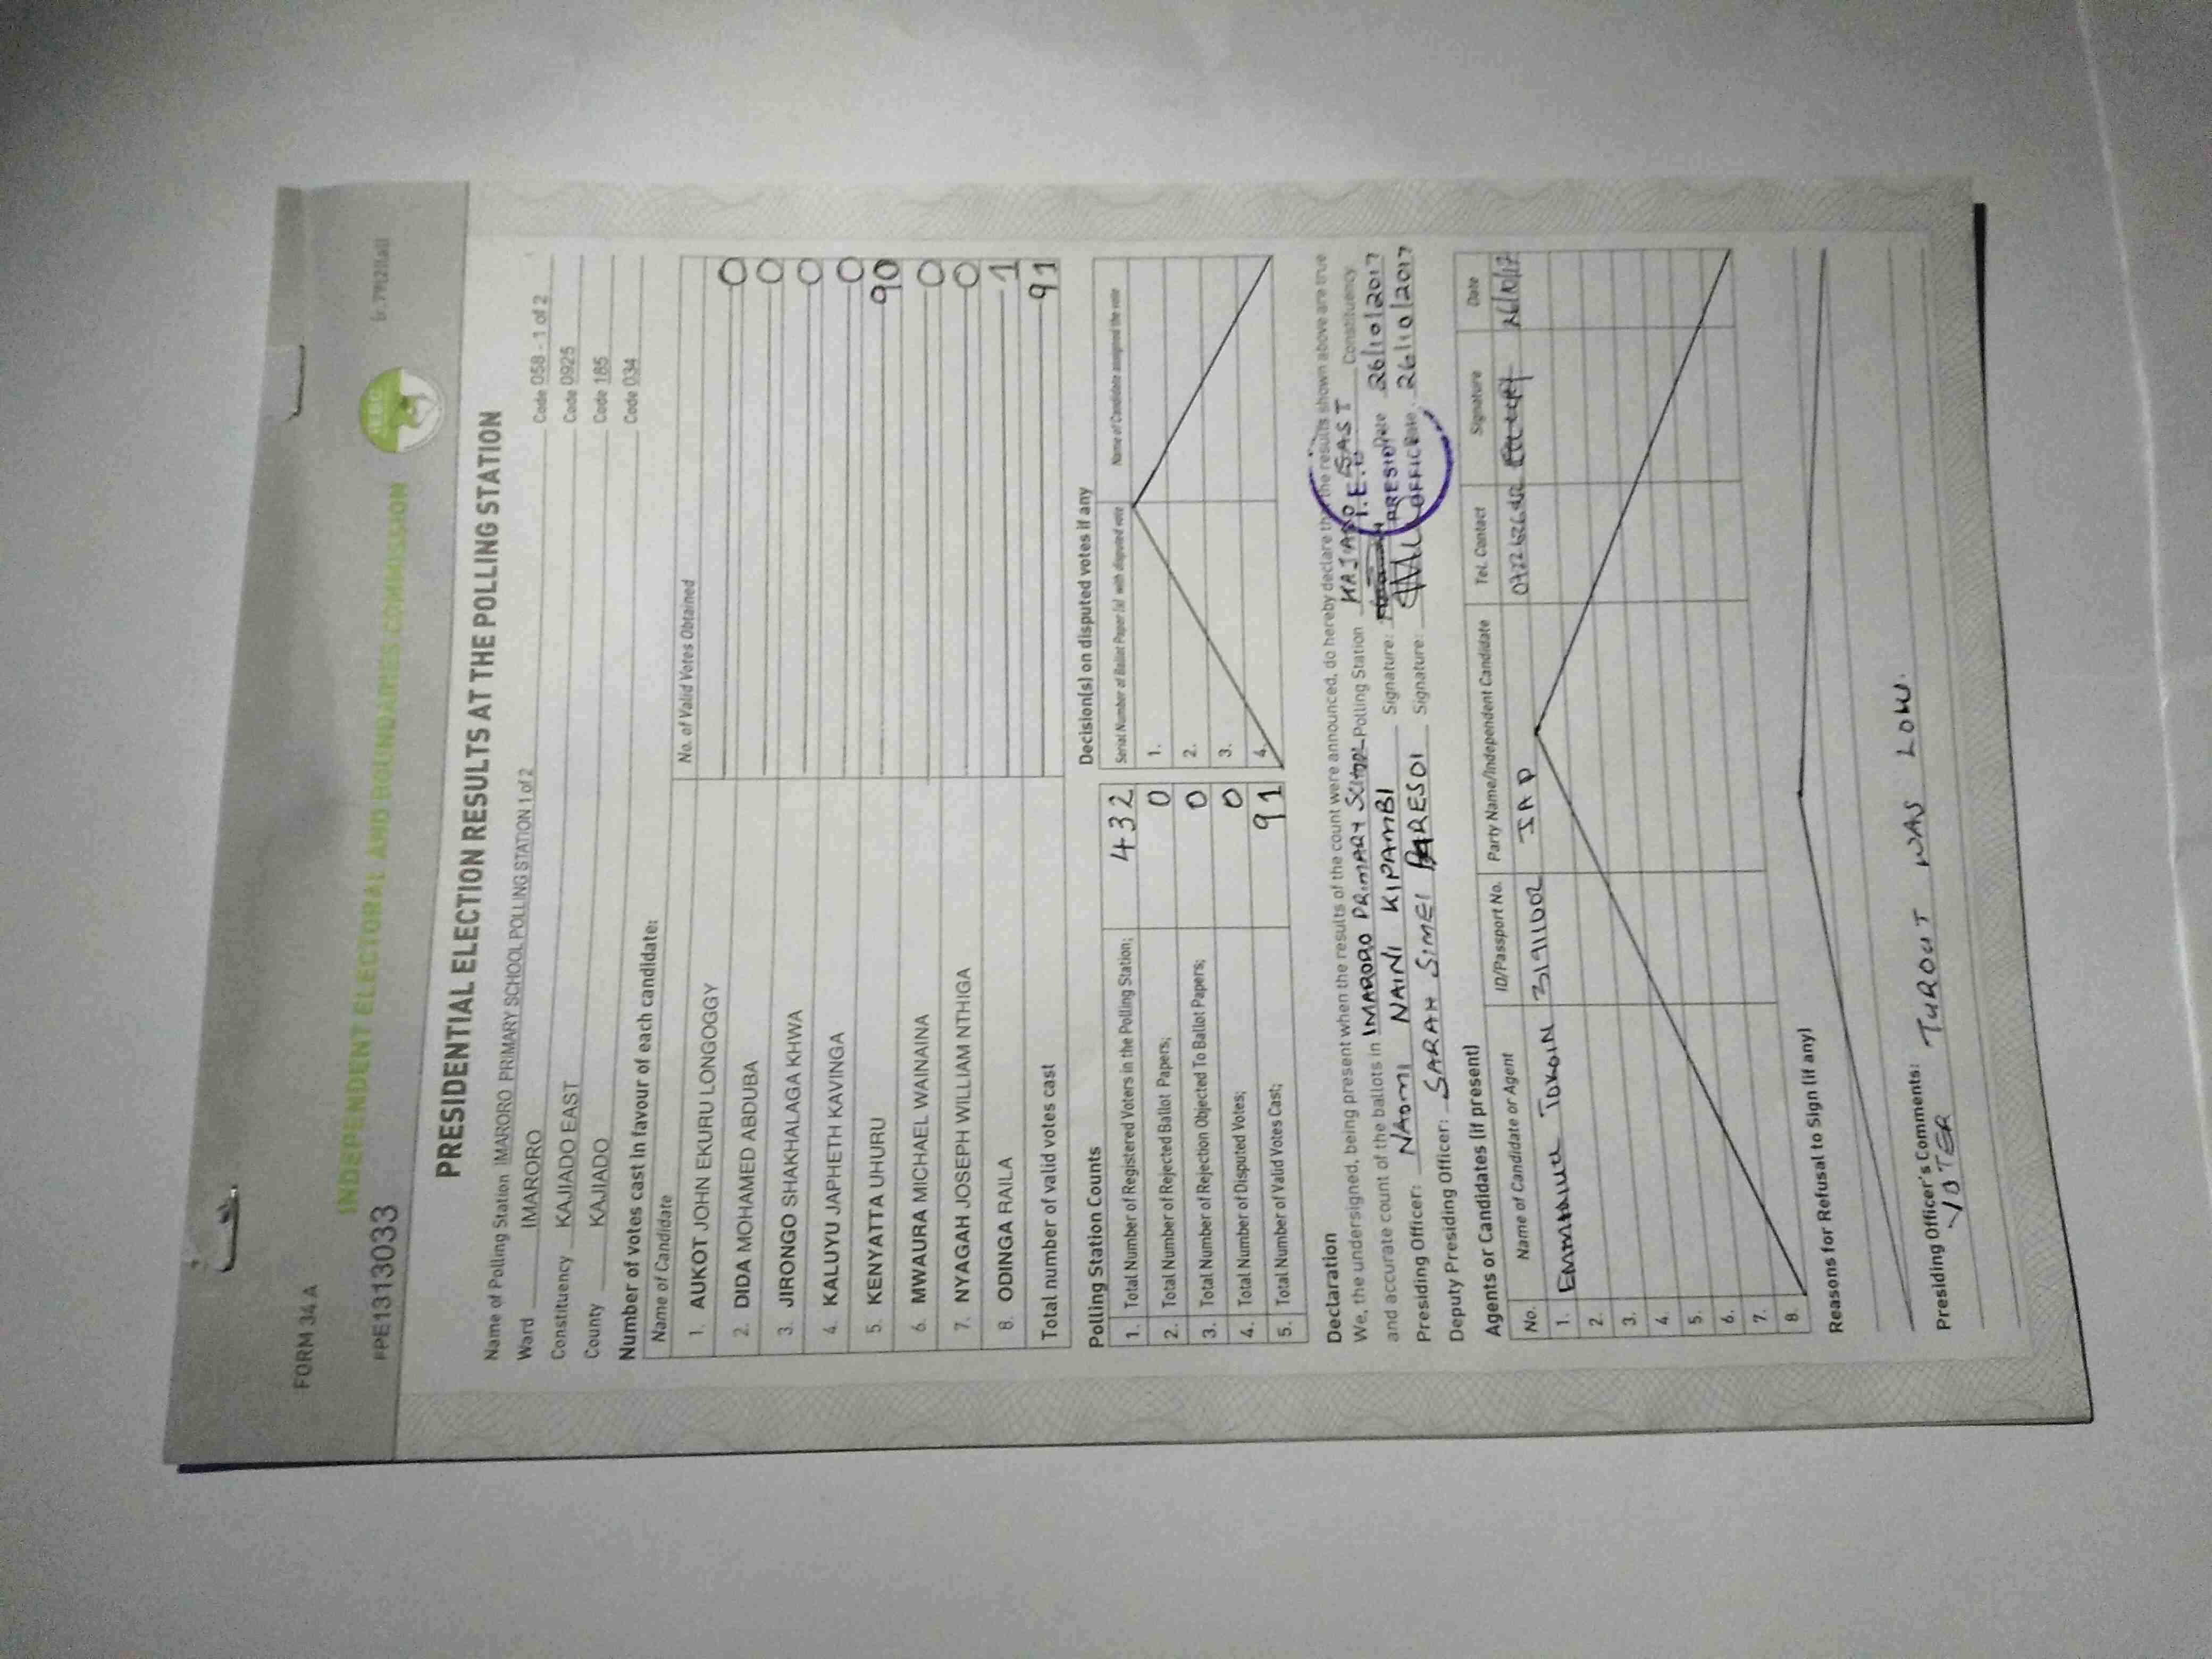 FORM 34 A
INDEPENDENT ELECTORAL AND BOUNDARIES COMMISSION
IEBC
PPE1313033
PRESIDENTIAL ELECTION RESULTS AT THE POLLING STATION
Name of Polling Station IMARORO PRIMARY SCHOOL POLLING STATION 1 of 2 Code 058 - 1 of 2
Ward IMARORO Code 0925
Constituency KAJIADO EAST Code 185
County KAJIADO Code 034
Number of votes cast in favour of each candidate:
Name of Candidate No. of Valid Votes Obtained
1. AUKOT JOHN EKURU LONGOGGY 0
2. DIDA MOHAMED ABDUBA 0
3. JIRONGO SHAKHALAGA KHWA 0
4. KALUYU JAPHETH KAVINGA 0
5. KENYATTA UHURU 90
6. MWAURA MICHAEL WAINAINA 0
7. NYAGAH JOSEPH WILLIAM NTHIGA 0
8. ODINGA RAILA 1
Total number of valid votes cast 91
Polling Station Counts
1. Total Number of Registered Voters in the Polling Station; 432
2. Total Number of Rejected Ballot Papers; 0
3. Total Number of Rejection Objected To Ballot Papers; 0
4. Total Number of Disputed Votes; 0
5. Total Number of Valid Votes Cast; 91
Decision(s) on disputed votes if any
Serial Number of Ballot Paper (s) with disputed vote Name of Candidate assigned the vote
1.
2.
3.
4.
Declaration
We, the undersigned, being present when the results of the count were announced, do hereby declare that the results shown above are true
and accurate count of the ballots in IMARORO PRIMARY SCHOOL Polling Station KAJIADO EAST Constituency
Presiding Officer: NAOMI NAINI KIPAMBI Signature: Date 26/10/2017
Deputy Presiding Officer: SARAH SIMEI PARESOI Signature: Date 26/10/2017
I.E.B
PRESIDI
OFFIC
Agents or Candidates (if present)
No. Name of Candidate or Agent ID/Passport No. Party Name/Independent Candidate Tel. Contact Signature Date
1. EMMANUEL JAP 26/10/17
2.
3.
4.
5.
6.
7.
8.
Reasons for Refusal to Sign (if any)
Presiding Officer's Comments: TUROUT WAS LOW.
VOTER